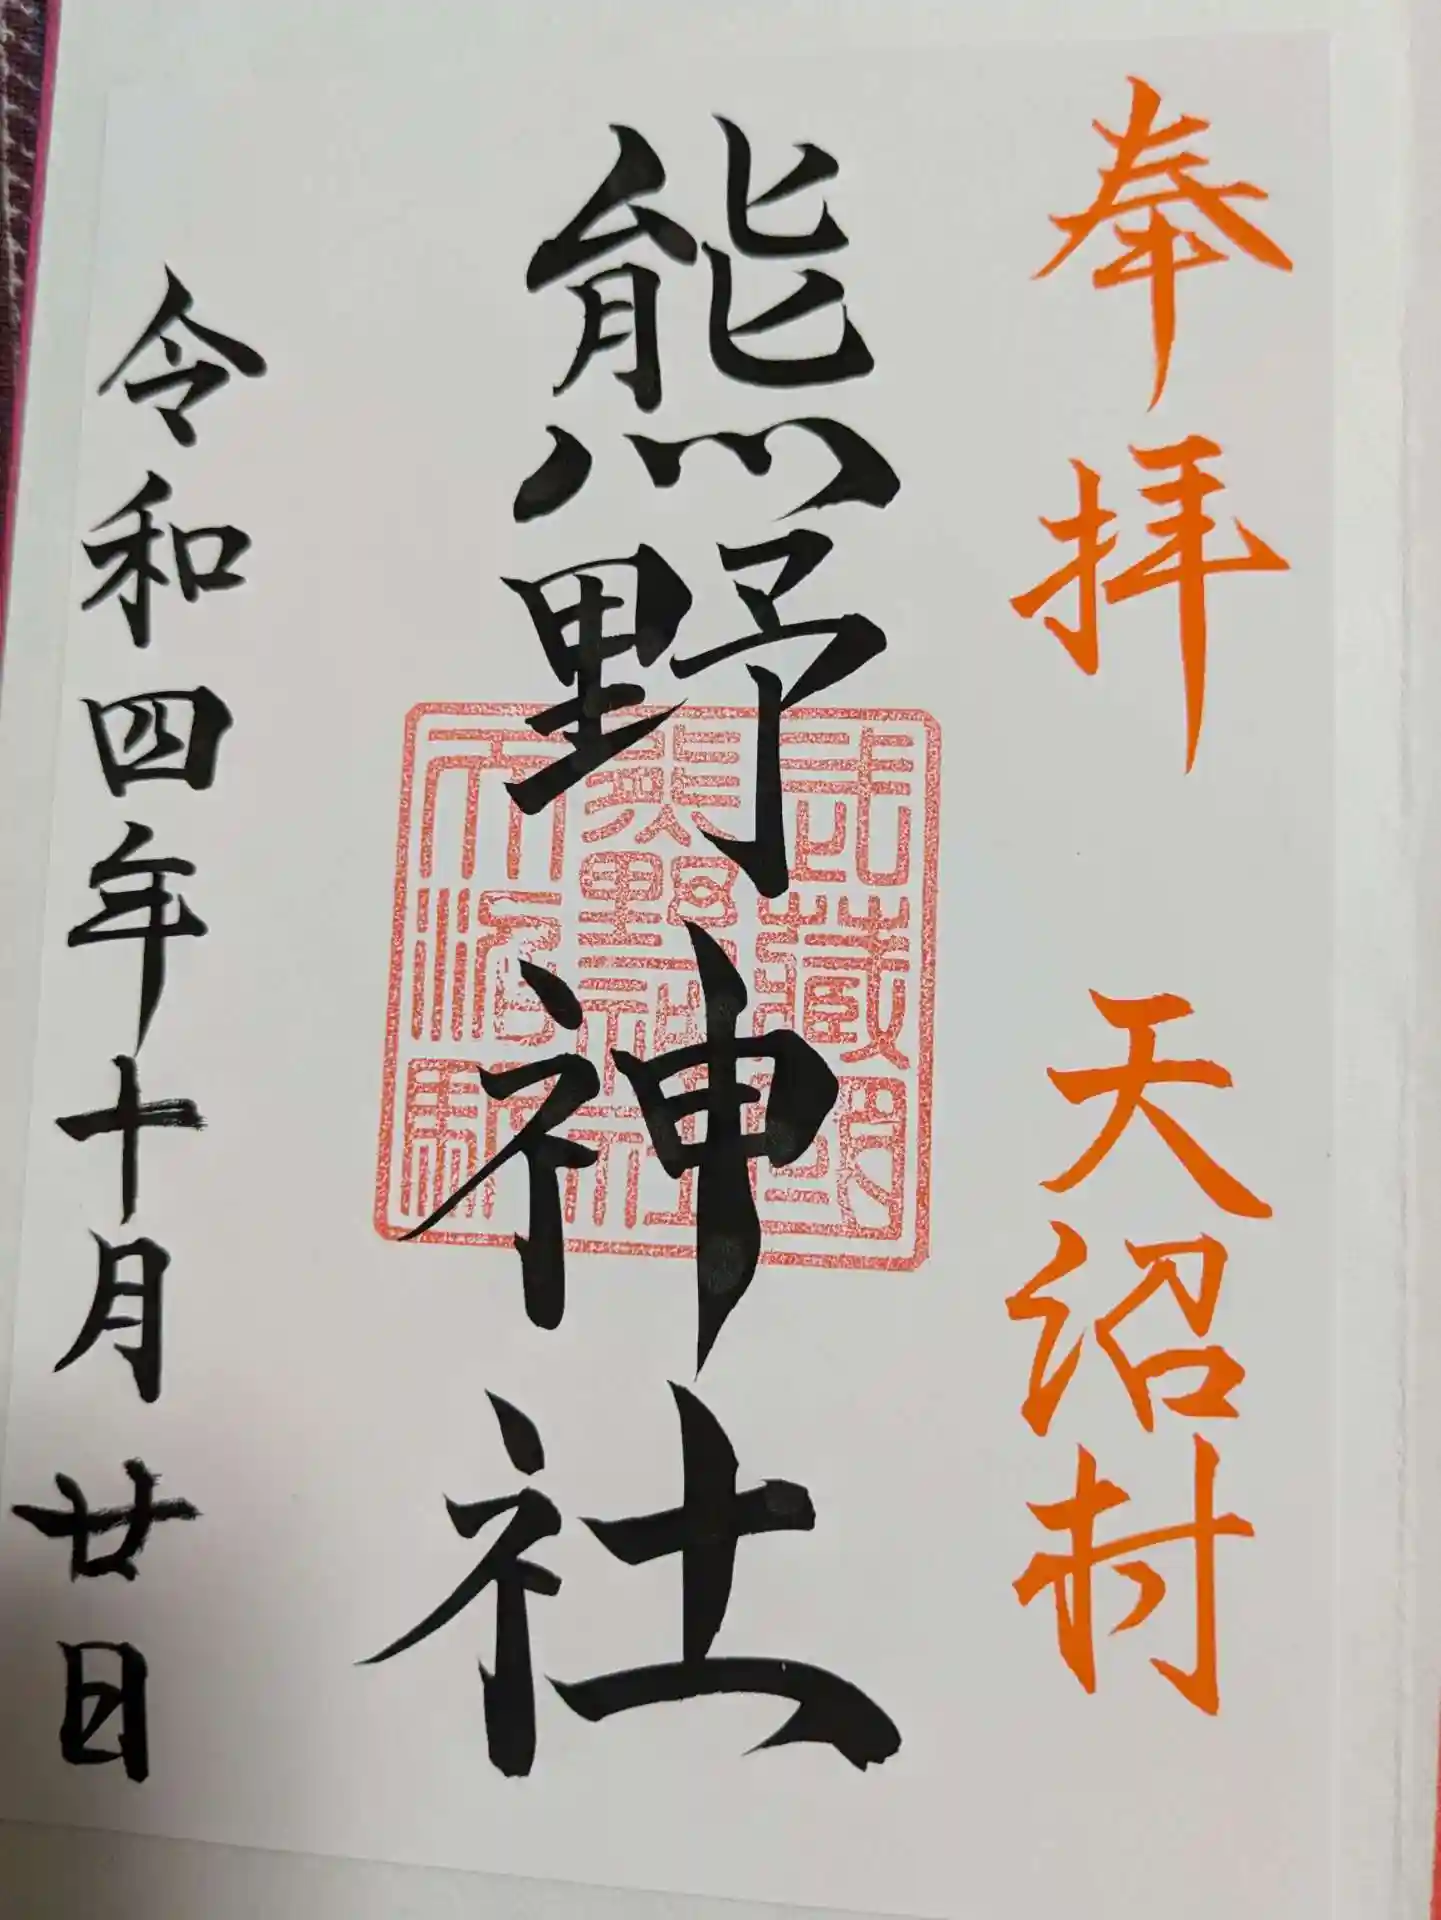 奉拝 天沼村
熊野神社
武蔵国
熊野神社
天沼鎮
令和四年十月廿日